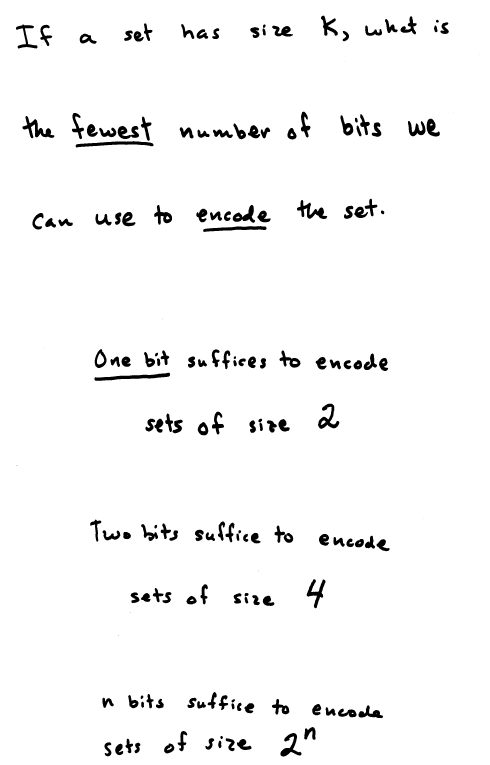 If a set has size K, what is
the fewest number of bits we
can use to encode the set.
One bit suffices to encode
sets of size 2
Two bits suffice to encode
sets of size 4
n bits suffice to encode
sets of size 2ⁿ